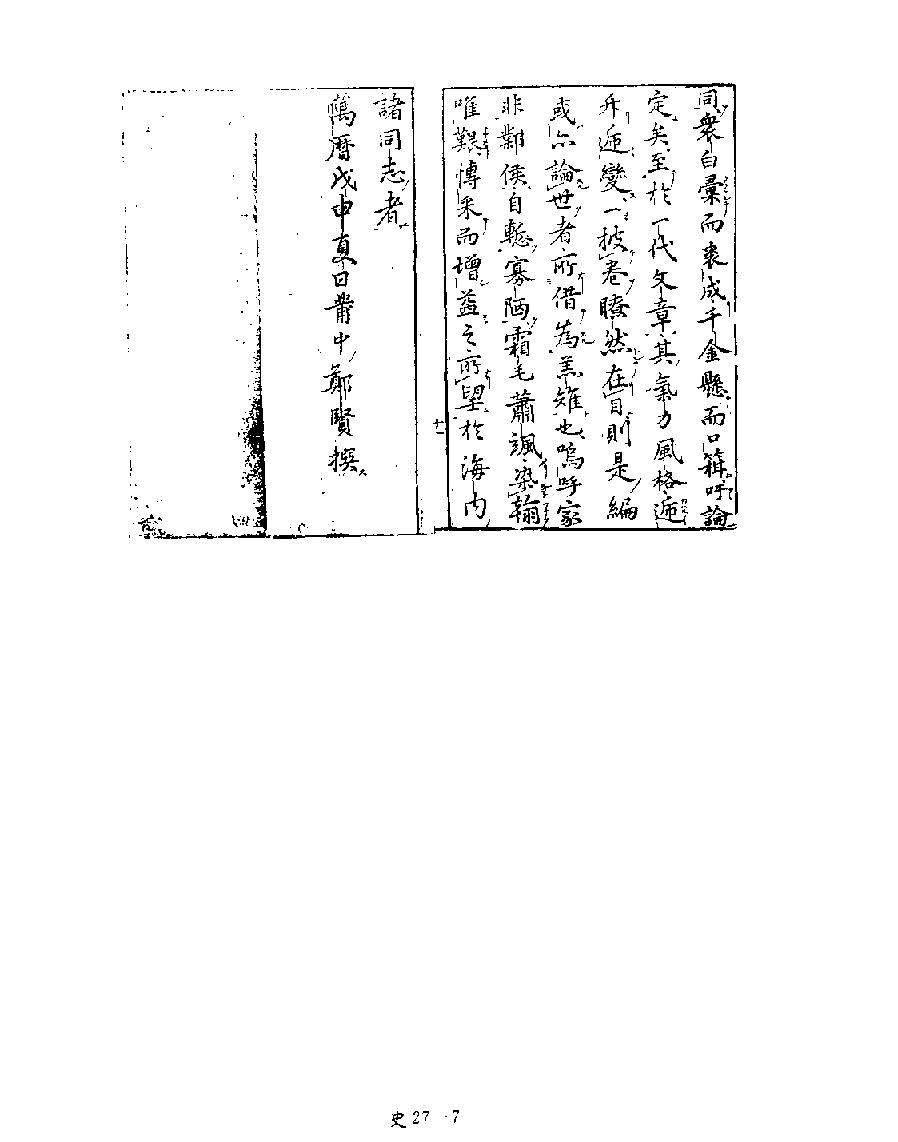 同衆白彙而裘成千金懸而口籍呼論
定矣至於一代文章其氣力風格遞
升遞變一披卷瞭然在目則是編
或亦論世者所借為羔雉也嗚呼家
非鄴侯自慙寡陋霜毛蕭颯染翰
唯艱博采而增益之所望於海內
諸同志者
萬曆戊申夏日莆中鄭賢撰
十一
史27-7